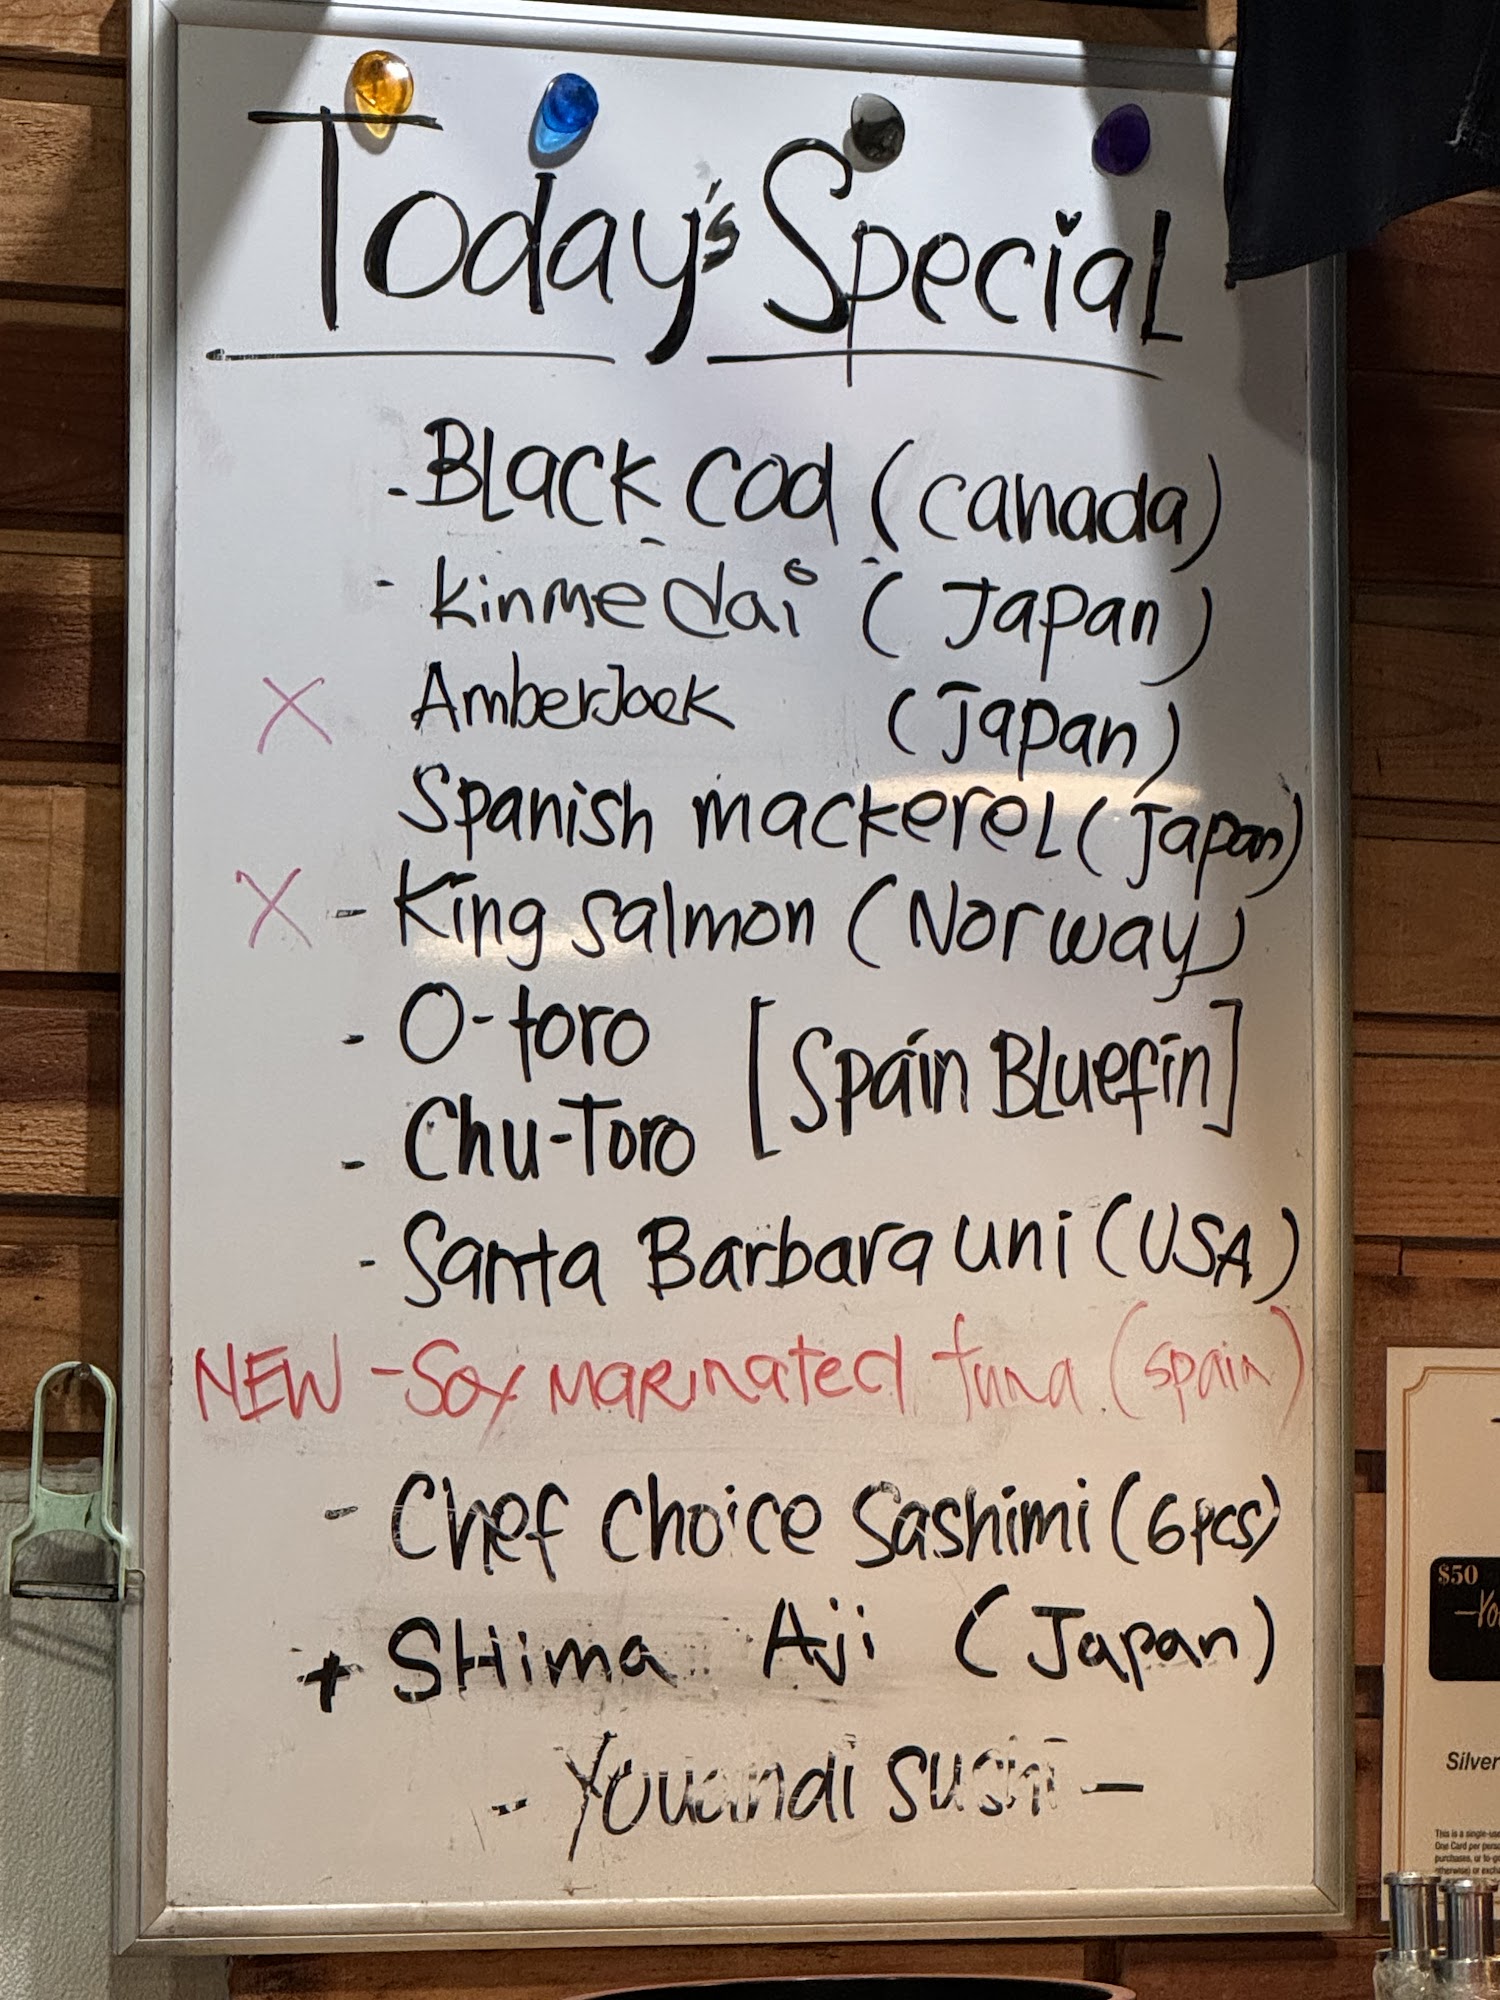 Today's Special
- Black cod (Canada)
- Kinmedai (Japan)
X Amberjoek (Japan)
Spanish mackerel (Japan)
X - King salmon (Norway)
- O-toro [Spain Bluefin]
- Chu-Toro
- Santa Barbara uni (USA)
NEW - Soy marinated tuna (spain)
- Chef choice Sashimi (6pcs)
+ SHima Aji (Japan)
- Youandi sushi -
$50
Silver
This is a single-use
One Card per perso